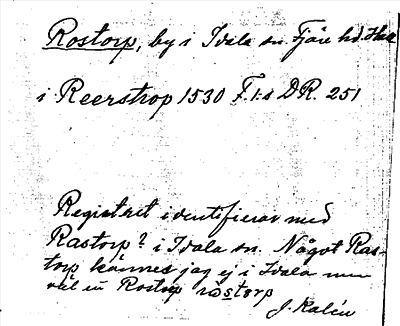 Rostorp, by i Idala sn. Fjäre hd. Hall
i Reerstrop 1530 F.1:a DR. 251
Registret identifierar med
Rastorp? i Idala sn. Något Ras-
torp kännes jag ej i Idala men
väl en Rostorp
J. Kalén